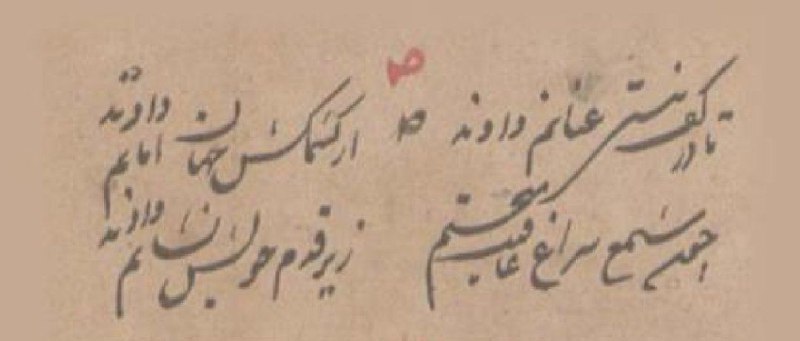 تا در کف نیستی عنانم دادند از کشمکش جهان امانم دادند
چون شمع سراغ عافیت میجستم زیر قدم خویش نشانم دادند